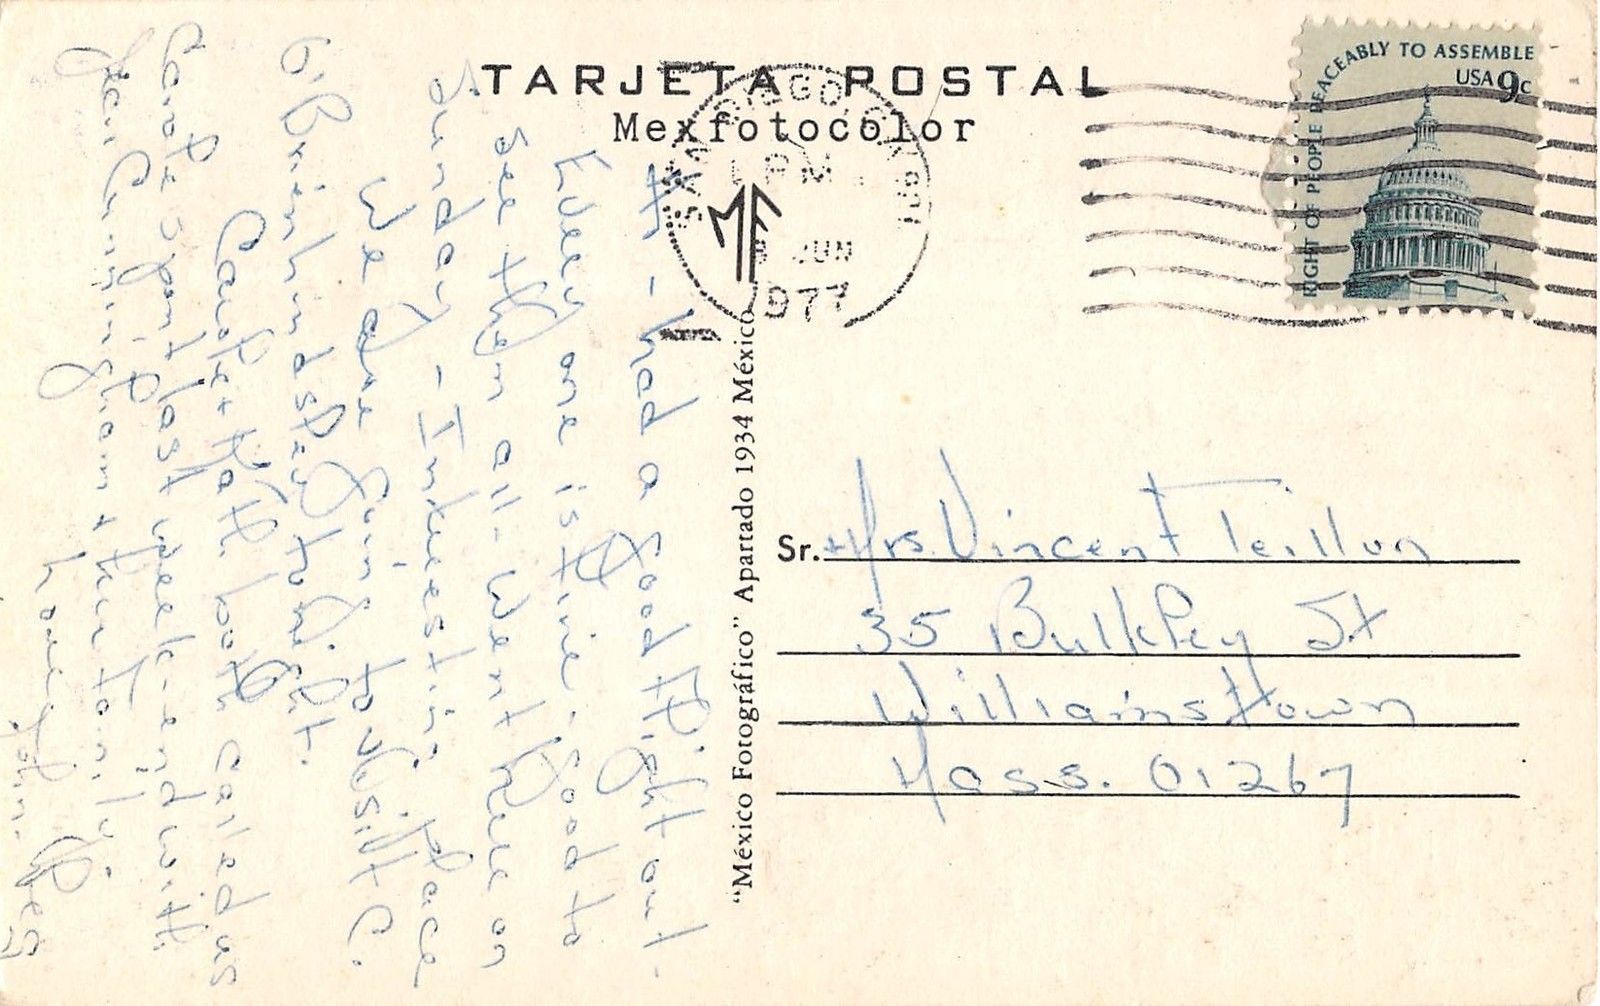 TARJETA POSTAL
Mexfotocolor
SAN DIEGO, CA
PM
JUN
1977
RIGHT OF PEOPLE PEACEABLY TO ASSEMBLE
USA 9c
MF
"México Fotográfico" Apartado 1934 México
Hi - had a good flight out -
Every one is fine; good to
see them all - Went here on
Sunday - Interesting place
We are going to visit C.
O'Brien + stay tonight.
Carole + Kath. both called us
Carole spent last week-end with
Jean Cunningham + her family.
Love, John + Peg
Sr. + Mrs. Vincent Teillon
35 Bulkley St
Williamstown
Mass. 01267